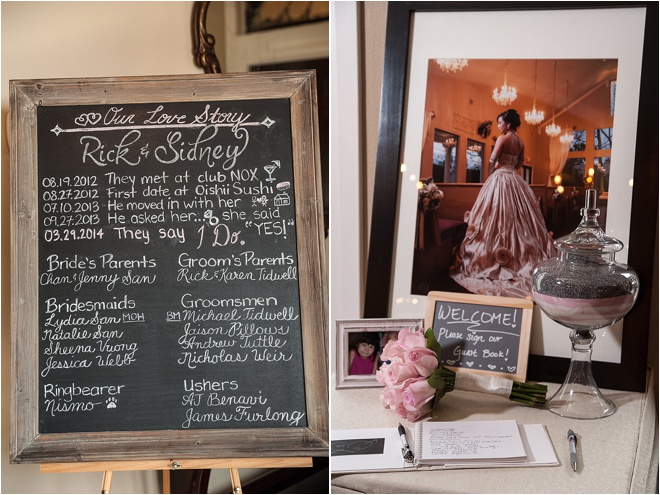 Our Love Story
Rick & Sidney
08.19.2012 They met at club NOX
08.27.2012 First date at Oishii Sushi
07.10.2013 He moved in with her
09.27.2013 He asked her... she said "YES!"
03.29.2014 They say I Do.
Bride's Parents
Chan & Jenny San
Groom's Parents
Rick & Karen Tidwell
Bridesmaids
Lydia San MOH
Natalie San
Sheena Vuong
Jessica Webb
Groomsmen
BM Michael Tidwell
Jaison Pillows
Andrew Tuttle
Nicholas Weir
Ringbearer
Nismo
Ushers
AJ Benavi
James Furlong
WELCOME!
Please sign our
Guest Book!